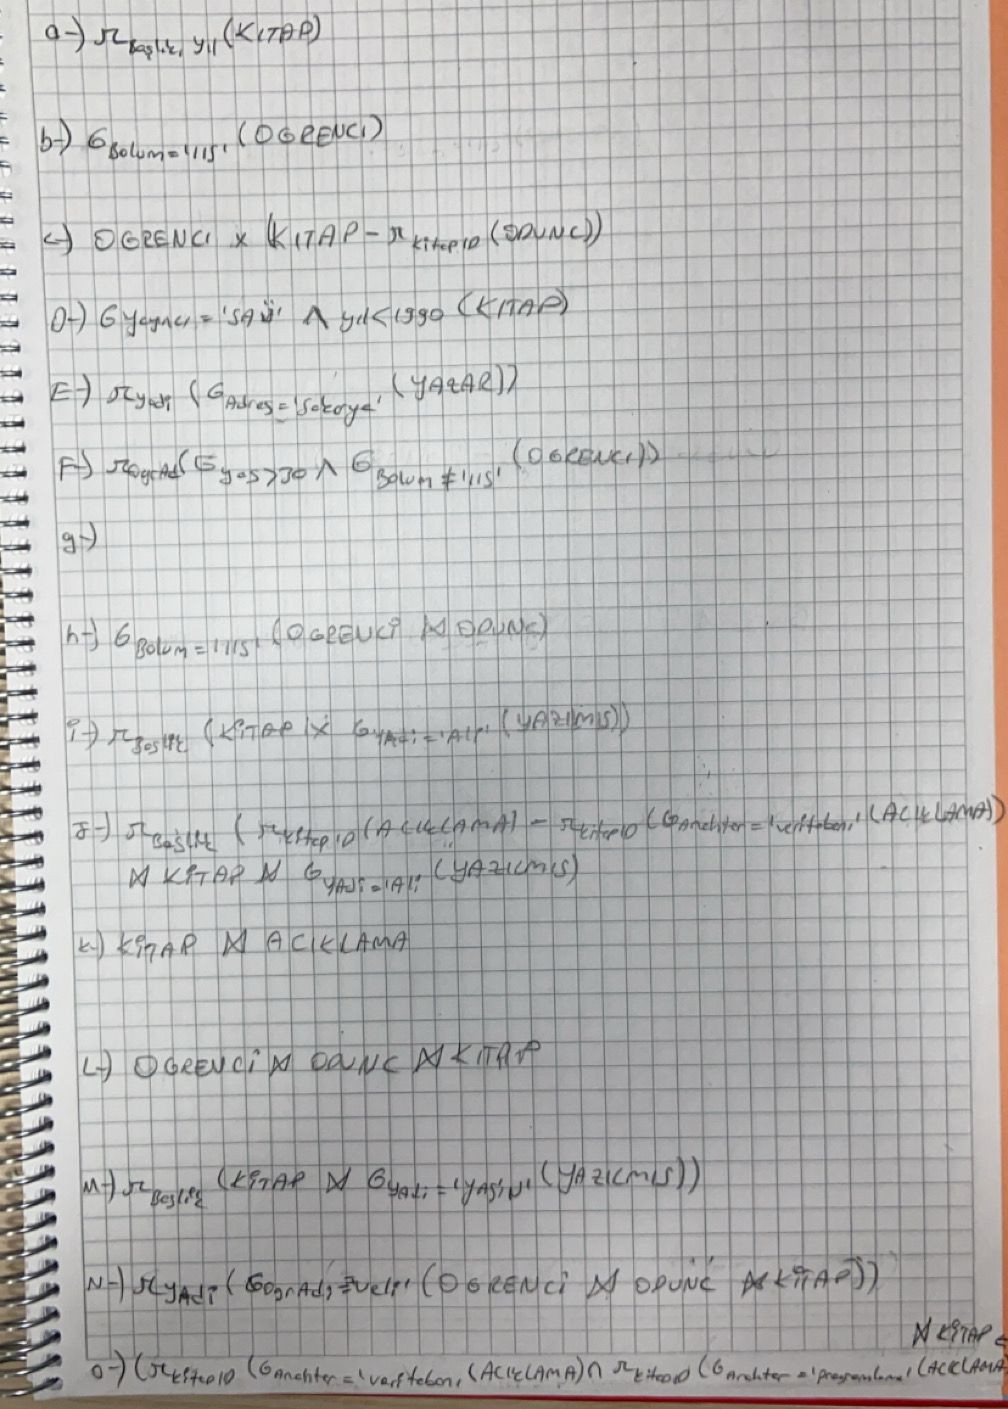 a-) π Başlık, yıl (KITAP)
b-) σ Bolum='115' (OGRENCI)
c-) OGRENCI x (KITAP - π KitapID (ODUNC))
D-) σ yayıncı = 'SAÜ' ∧ yıl<1990 (KITAP)
E-) π yadi (σ Adres='Sakarya' (YAZAR))
F-) π OgrAd (σ yas>30 ∧ σ Bolum ≠ '115' (OGRENCI))
g-)
h-) σ Bolum='115' (OGRENCİ ⋈ ODUNC)
i-) π Baslık (KİTAP ⋈ σ YAdi='Ali' (YAZILMIS))
J-) π Başlık (π KitapID (ACIKLAMA) - π KitapID (σ Anahtar='veritabanı' (ACIKLAMA))
⋈ KİTAP ⋈ σ YAdi='Ali' (YAZILMIS)
K-) KİTAP ⋈ ACIKLAMA
L-) OGRENCİ ⋈ ODUNC ⋈ KITAP
M-) π Baslık (KİTAP ⋈ σ YAdi='YASİN' (YAZILMIS))
N-) π YAdi (σ OgrAdi='veli' (OGRENCİ ⋈ ODUNC ⋈ KİTAP))
⋈ KİTAP
O-) (π KitapID (σ Anahtar='veritabanı' (ACIKLAMA) ∩ π KitapID (σ Anahtar='programlama' (ACIKLAMA